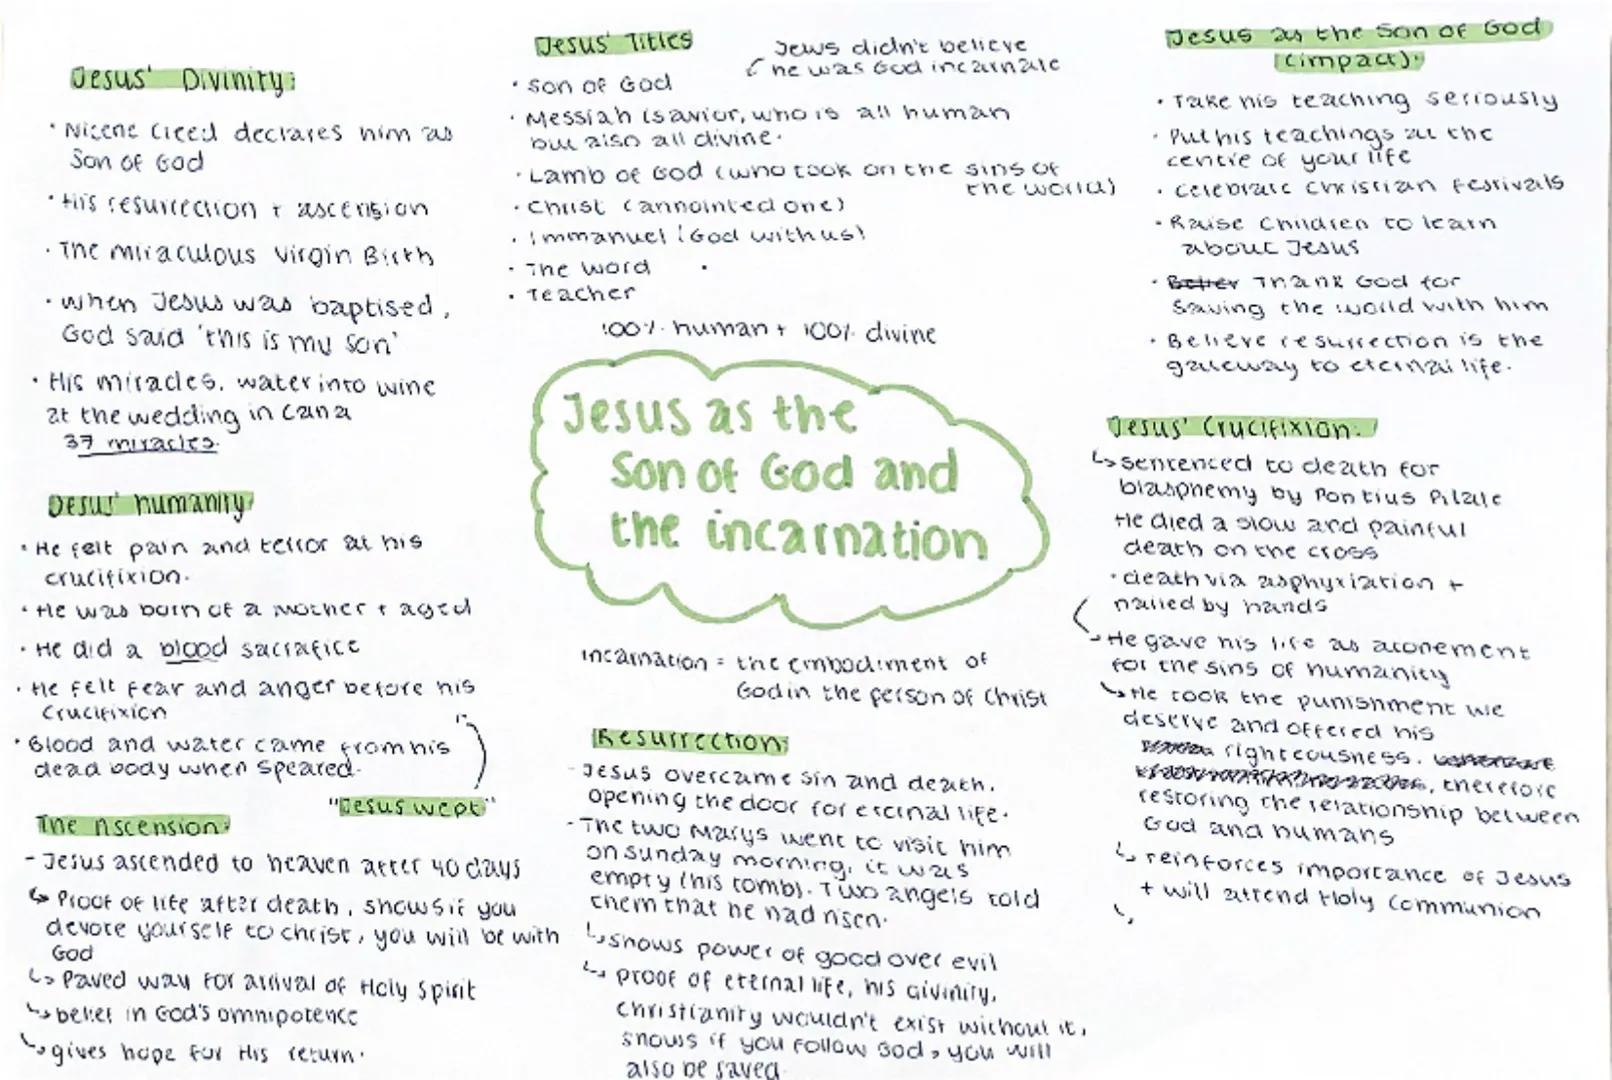 Jesus' Divinity:
• Nicene Creed declares him as
Son of God
• His resurrection + ascension
• The miraculous Virgin Birth
• When Jesus was baptised,
God said 'this is my son'
• His miracles, water into wine
at the wedding in Cana
37 miracles.
Jesus' humanity
• He felt pain and terror at his
crucifixion.
• He was born of a mother + aged
• He did a blood sacrafice
• He felt fear and anger before his
Crucifixion
• Blood and water came from his
dead body when speared.
"Jesus wept"
The Ascension:
- Jesus ascended to heaven after 40 days
↳ Proof of life after death, shows if you
devote yourself to christ, you will be with
God
↳ Paved way for arrival of Holy Spirit
↳ belief in God's omnipotence
↳ gives hope for His return.
Jesus' Titles
Jews didn't believe
he was God incarnate
• Son of God
• Messiah (savior, who is all human
but also all divine.
• Lamb of God (who took on the sins of
the world)
• Christ (annointed one)
• Immanuel (God with us)
• The Word
• Teacher
100% human + 100% divine
Jesus as the
Son of God and
the incarnation
incarnation = the embodiment of
God in the person of Christ
Resurrection:
- Jesus overcame sin and death,
opening the door for eternal life.
- The two Marys went to visit him
on Sunday morning, it was
empty (his tomb). Two angels told
them that he had risen.
↳ shows power of good over evil
↳ proof of eternal life, his divinity,
Christianity wouldn't exist without it,
shows if you follow God, you will
also be saved.
Jesus as the Son of God
(impact).
• Take his teaching seriously
• Put his teachings at the
centre of your life
• Celebrate Christian festivals
• Raise Children to learn
about Jesus
• Thank God for
saving the world with him
• Believe resurrection is the
gateway to eternal life.
Jesus' Crucifixion.
↳ sentenced to death for
blasphemy by Pontius Pilate
He died a slow and painful
death on the cross
• death via asphyxiation +
nailed by hands
↳ He gave his life as atonement
for the sins of humanity
↳ He took the punishment we
deserve and offered his
righteousness.
, therefore
restoring the relationship between
God and humans
↳ reinforces importance of Jesus
+ will attend Holy Communion